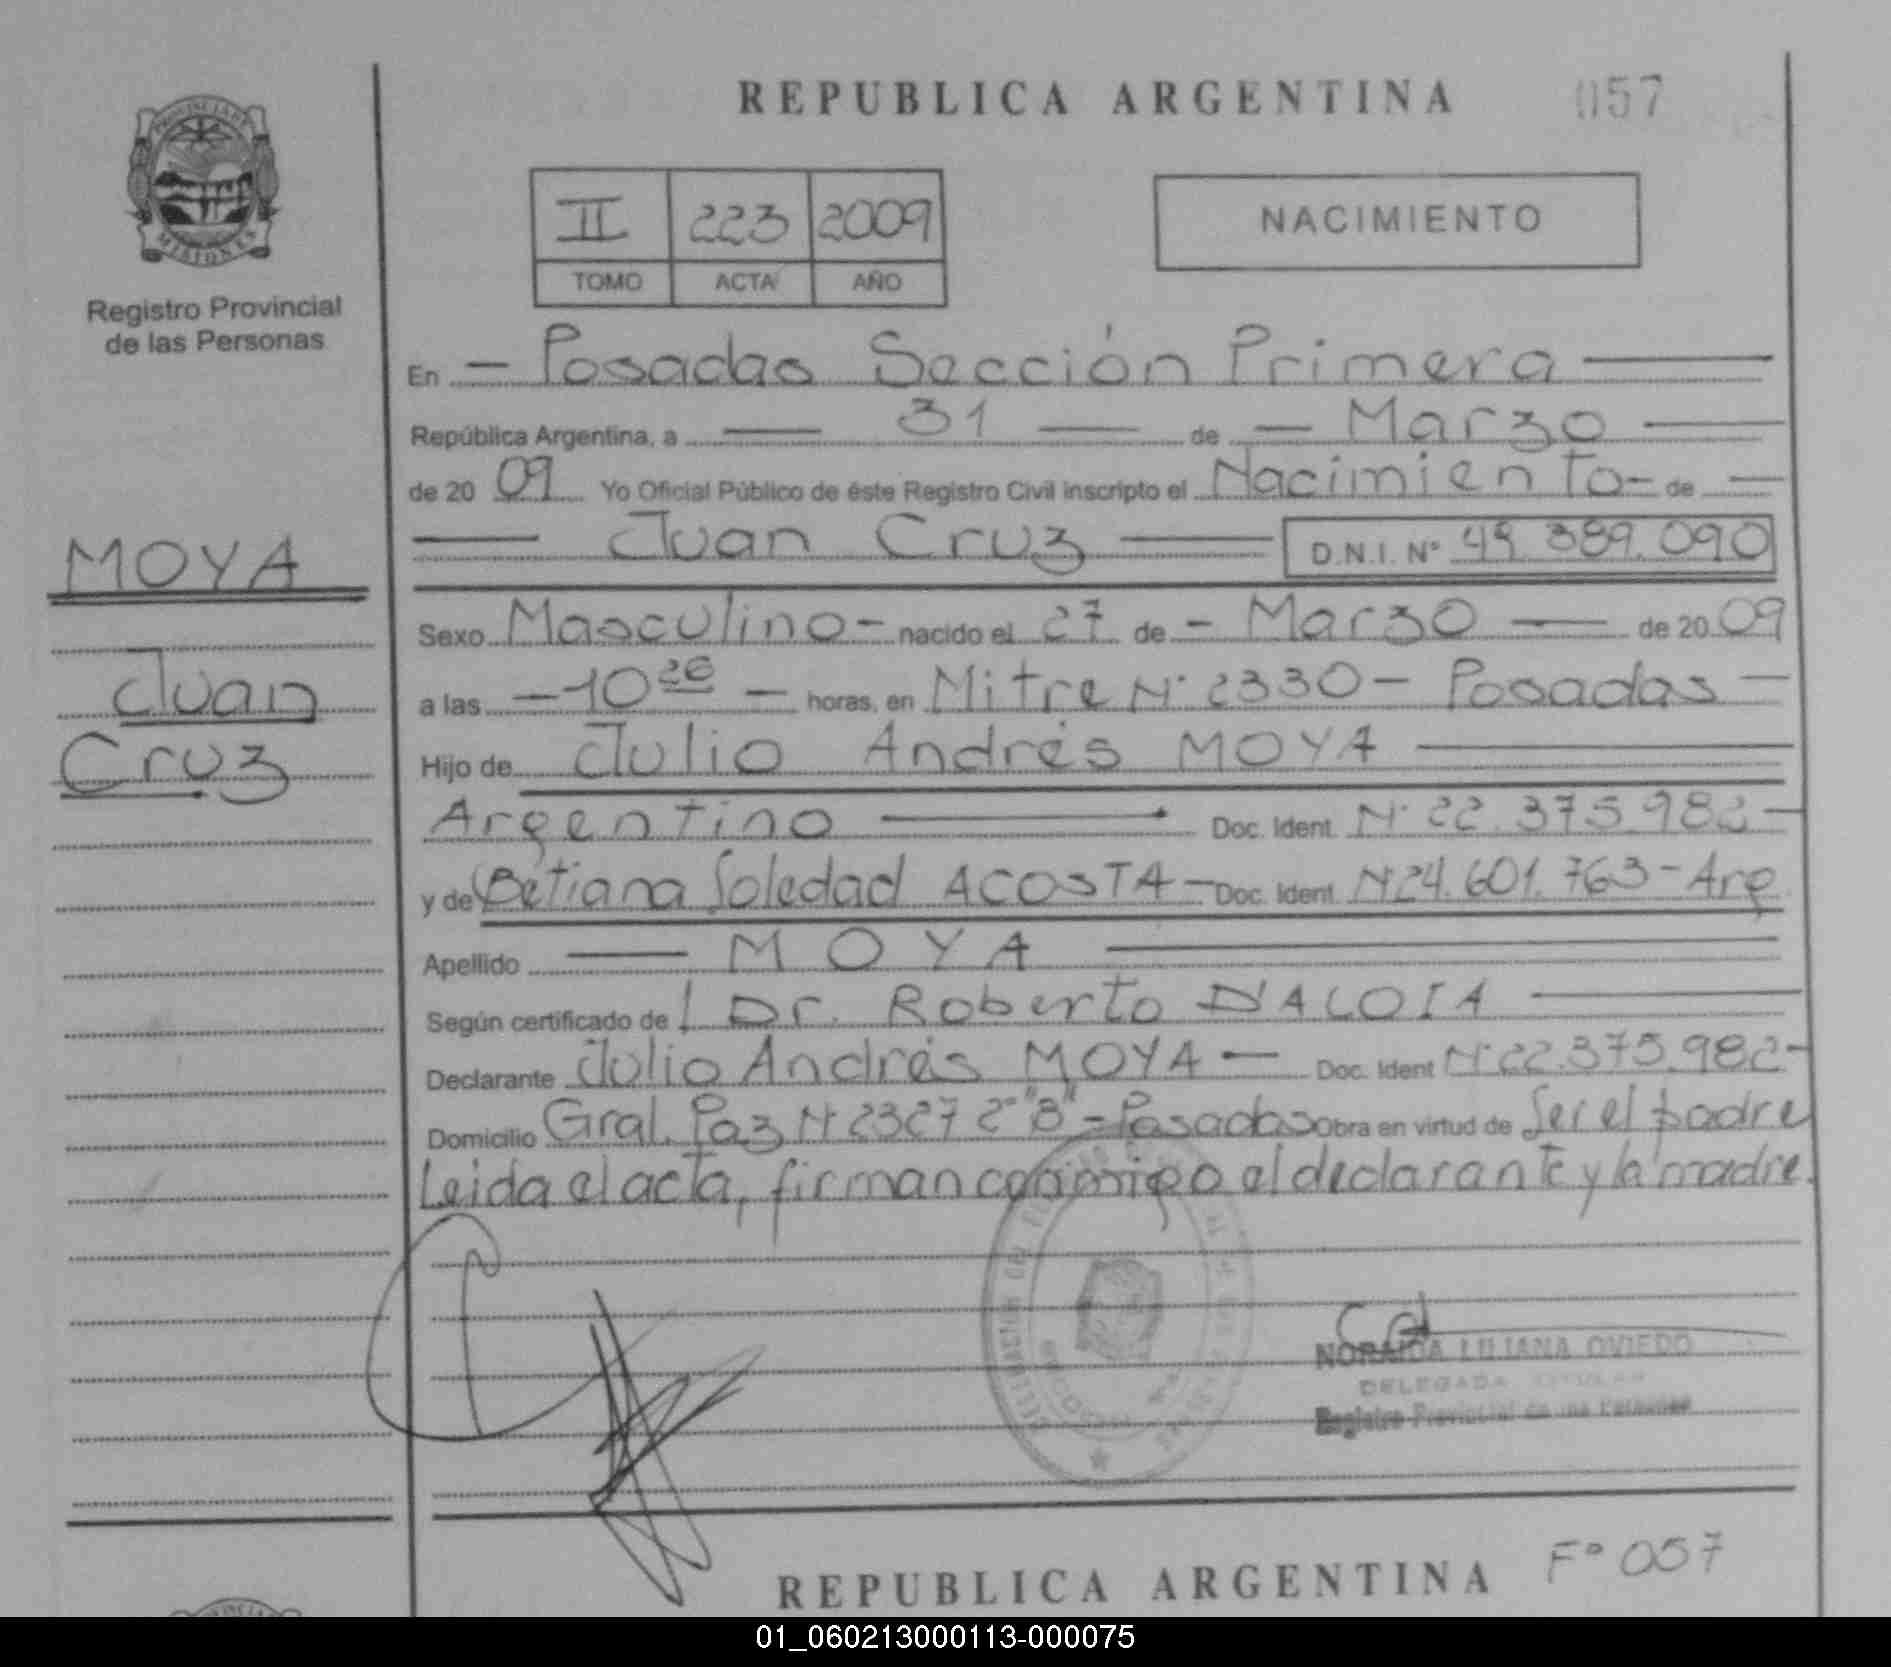 REPUBLICA ARGENTINA
057
PROVINCIA DE
MISIONES
Registro Provincial
de las Personas
II 223 2009
TOMO ACTA AÑO
NACIMIENTO
En — Posadas Sección Primera —
República Argentina, a — 31 — de — Marzo —
de 20 09 Yo Oficial Público de éste Registro Civil inscripto el Nacimiento - de —
— Juan Cruz — D.N.I. Nº 49.389.090
MOYA
Juan
Cruz
Sexo Masculino - nacido el 27 de - Marzo — de 20 09
a las — 10 — horas, en Mitre Nº 2330 - Posadas —
Hijo de Julio Andrés MOYA —
Argentino — Doc. Ident. Nº 22.375.982 —
y de Betiana Soledad ACOSTA — Doc. Ident. Nº 24.601.763 - Arg
Apellido — MOYA —
Según certificado de Dr. Roberto D'ALOIA —
Declarante Julio Andrés MOYA — Doc. Ident Nº 22.375.982 -
Domicilio Gral. Paz Nº 2327 2º "B" - Posadas Obra en virtud de Ser el padre
Leida el acta, firman conmigo el declarante y la madre.
NORAIDA LILIANA OVIEDO
DELEGADA TITULAR
Registro Provincial de las Personas
REPUBLICA ARGENTINA
Fº 057
01_060213000113-000075